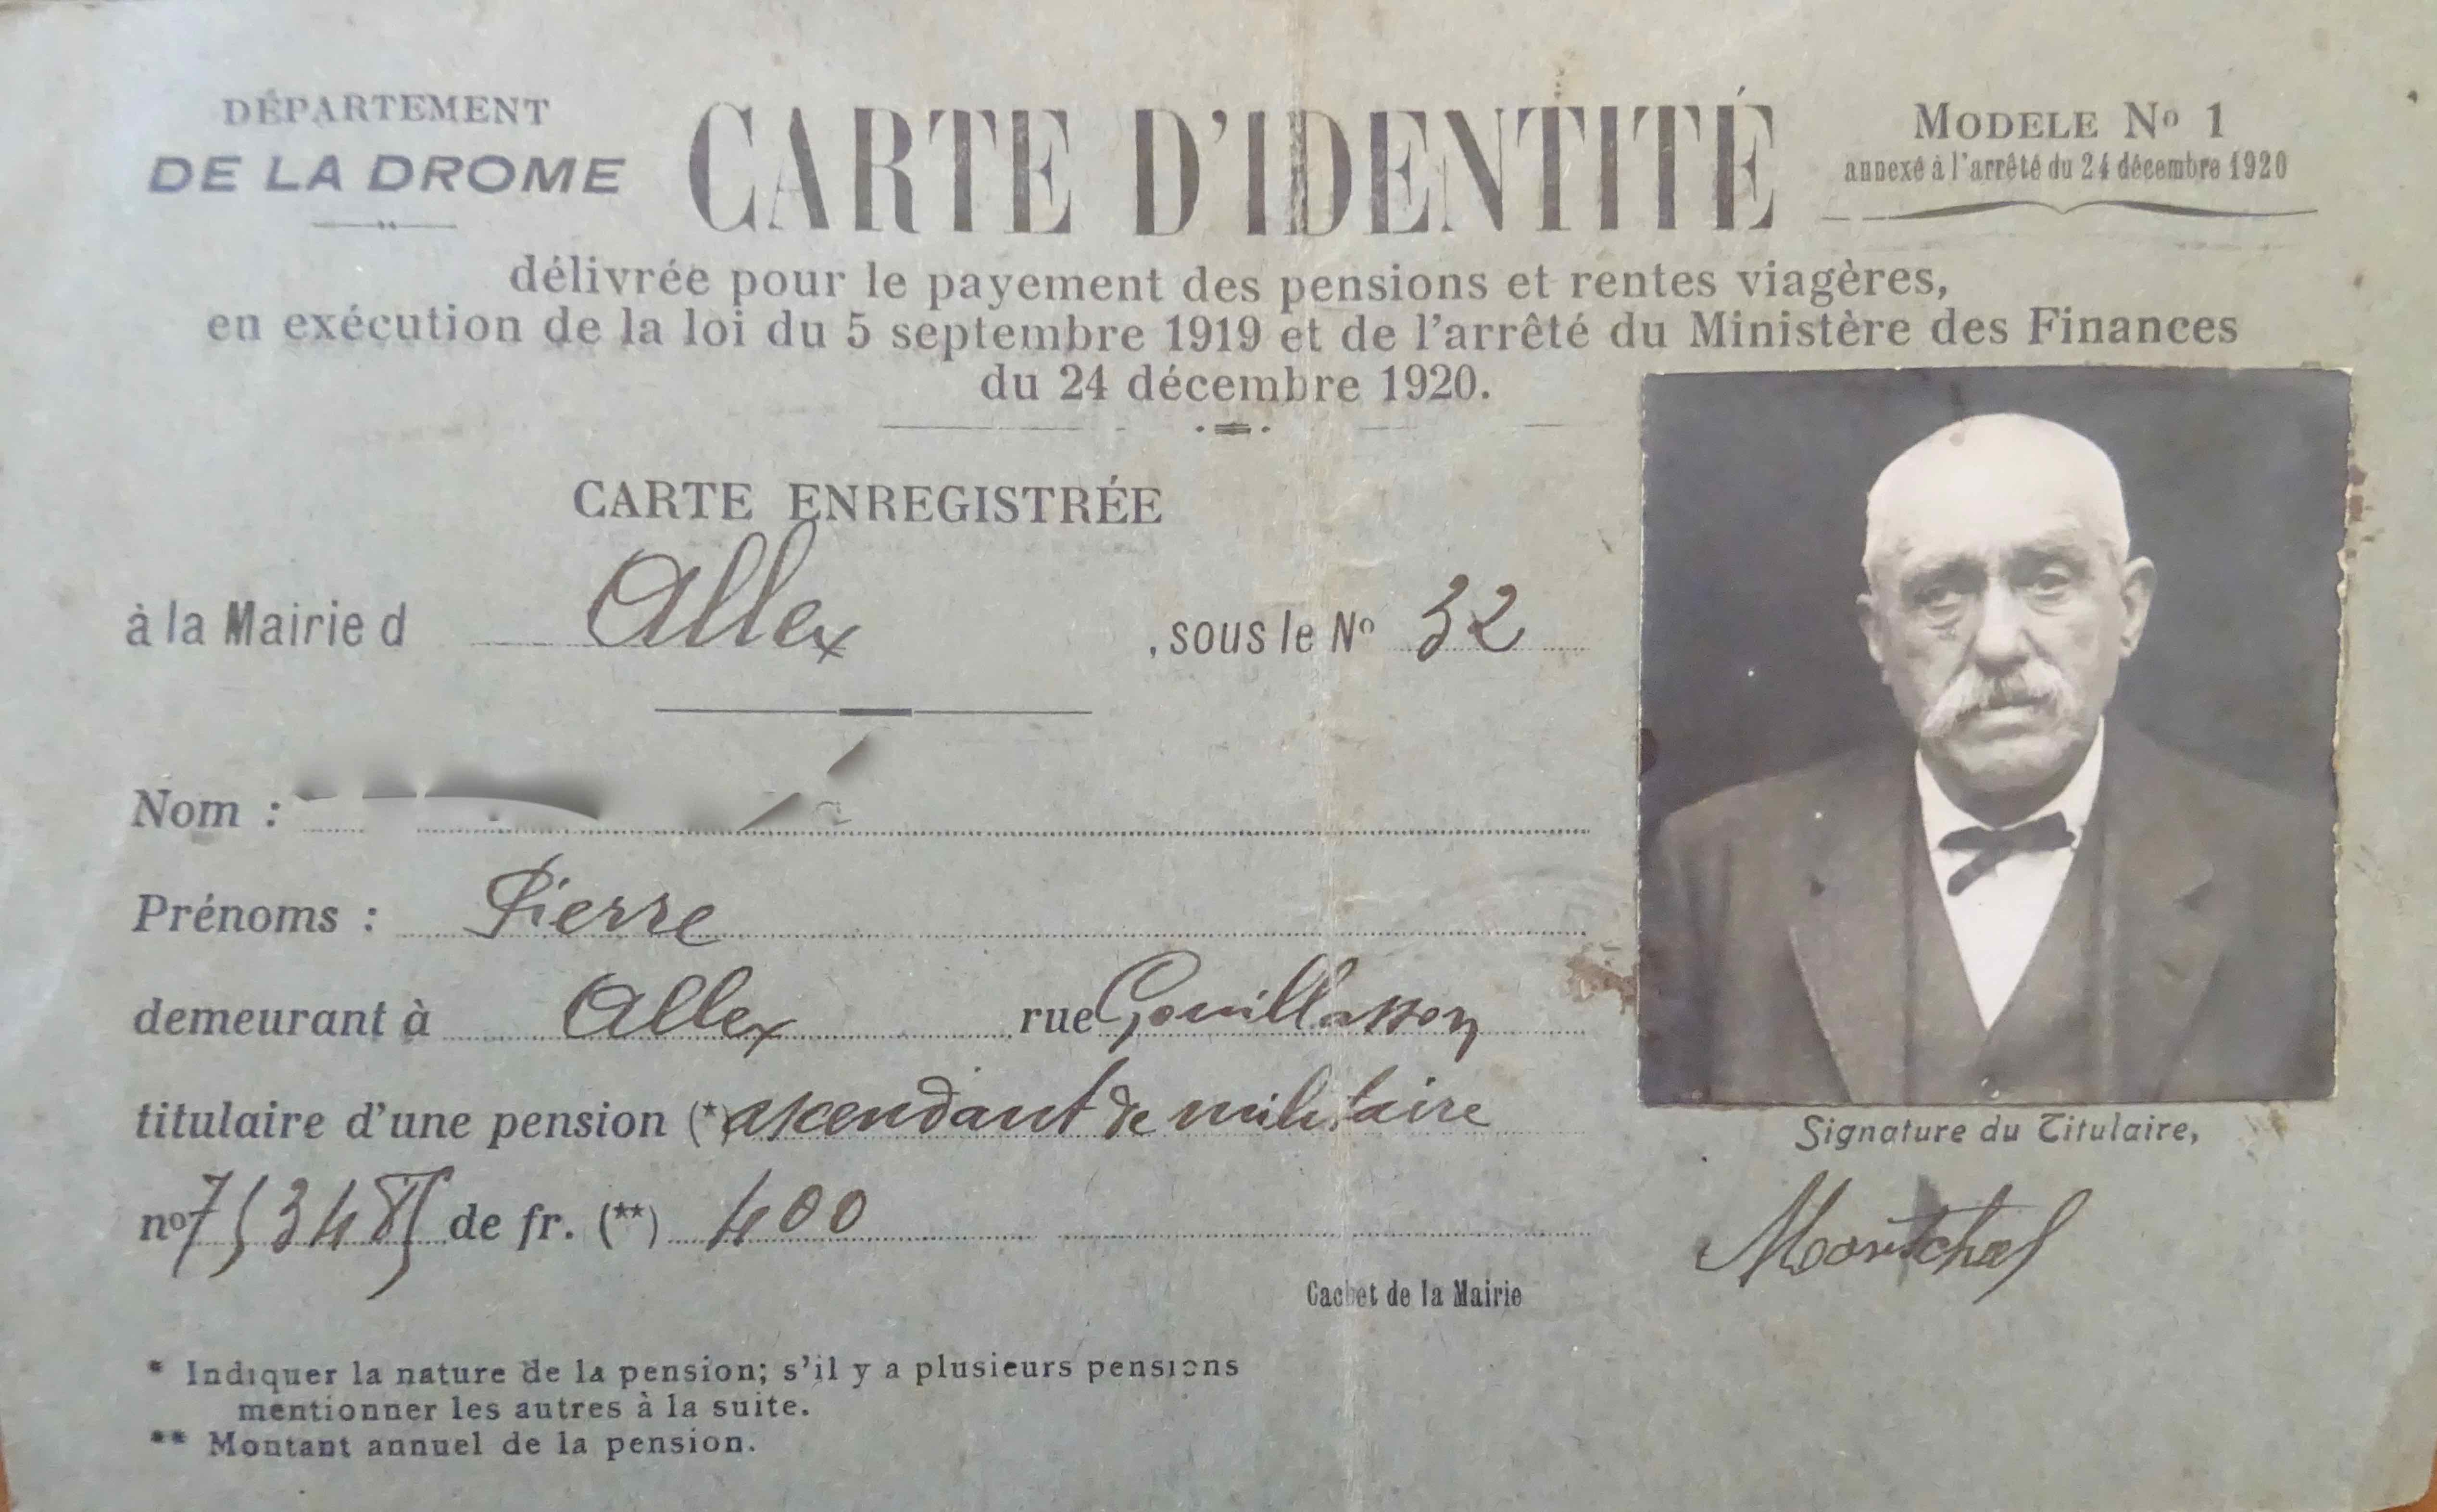 DÉPARTEMENT
DE LA DROME
CARTE D'IDENTITÉ
MODELE No 1
annexé à l'arrêté du 24 décembre 1920
délivrée pour le payement des pensions et rentes viagères,
en exécution de la loi du 5 septembre 1919 et de l'arrêté du Ministère des Finances
du 24 décembre 1920.
CARTE ENREGISTRÉE
à la Mairie d Allex , sous le No 32
Nom :
Prénoms : Pierre
demeurant à Allex rue Gouillasson
titulaire d'une pension (*) ascendant de militaire
no 753485 de fr. (**) 400
Signature du Titulaire,
Cachet de la Mairie
* Indiquer la nature de la pension; s'il y a plusieurs pensions
mentionner les autres à la suite.
** Montant annuel de la pension.